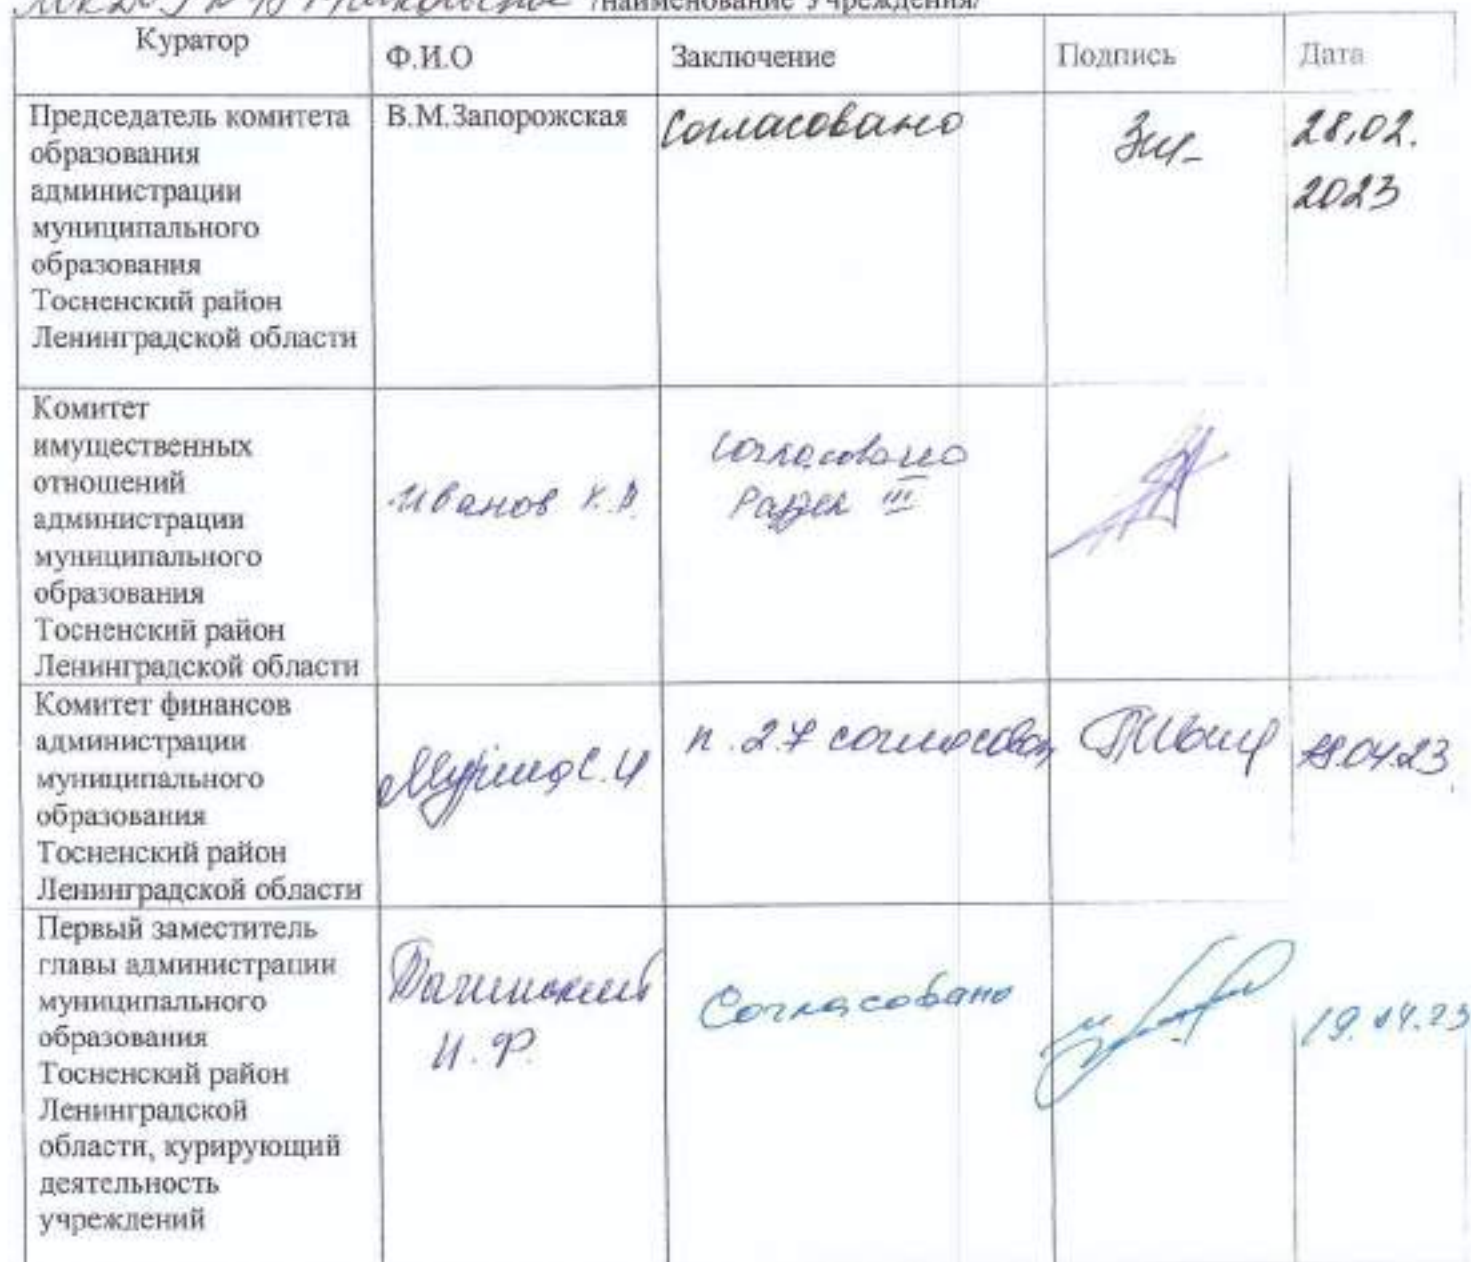 /наименование Учреждения/
Куратор Ф.И.О Заключение Подпись Дата
Председатель комитета
образования
администрации
муниципального
образования
Тосненский район
Ленинградской области
В.М.Запорожская
Согласовано
28.02.
2023
Комитет
имущественных
отношений
администрации
муниципального
образования
Тосненский район
Ленинградской области
Иванов
согласовано
Раздел III
Комитет финансов
администрации
муниципального
образования
Тосненский район
Ленинградской области
п. 2.7 согласован
04.23
Первый заместитель
главы администрации
муниципального
образования
Тосненский район
Ленинградской
области, курирующий
деятельность
учреждений
И.Ф.
Согласовано
19.04.23